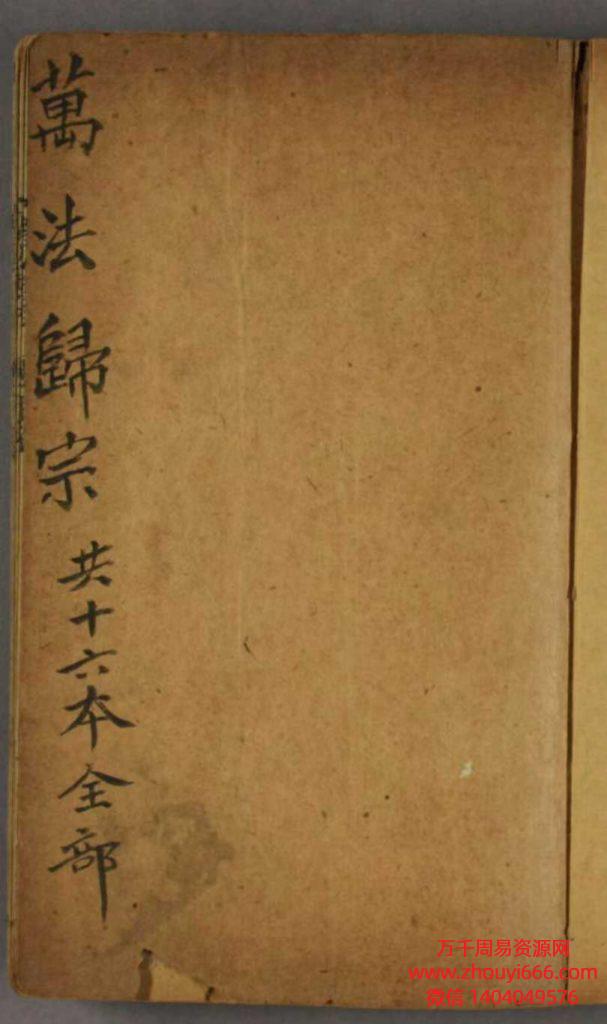 萬法歸宗 共十六本全部
万千周易资源网
www.zhouyi666.com
微信 1404049576